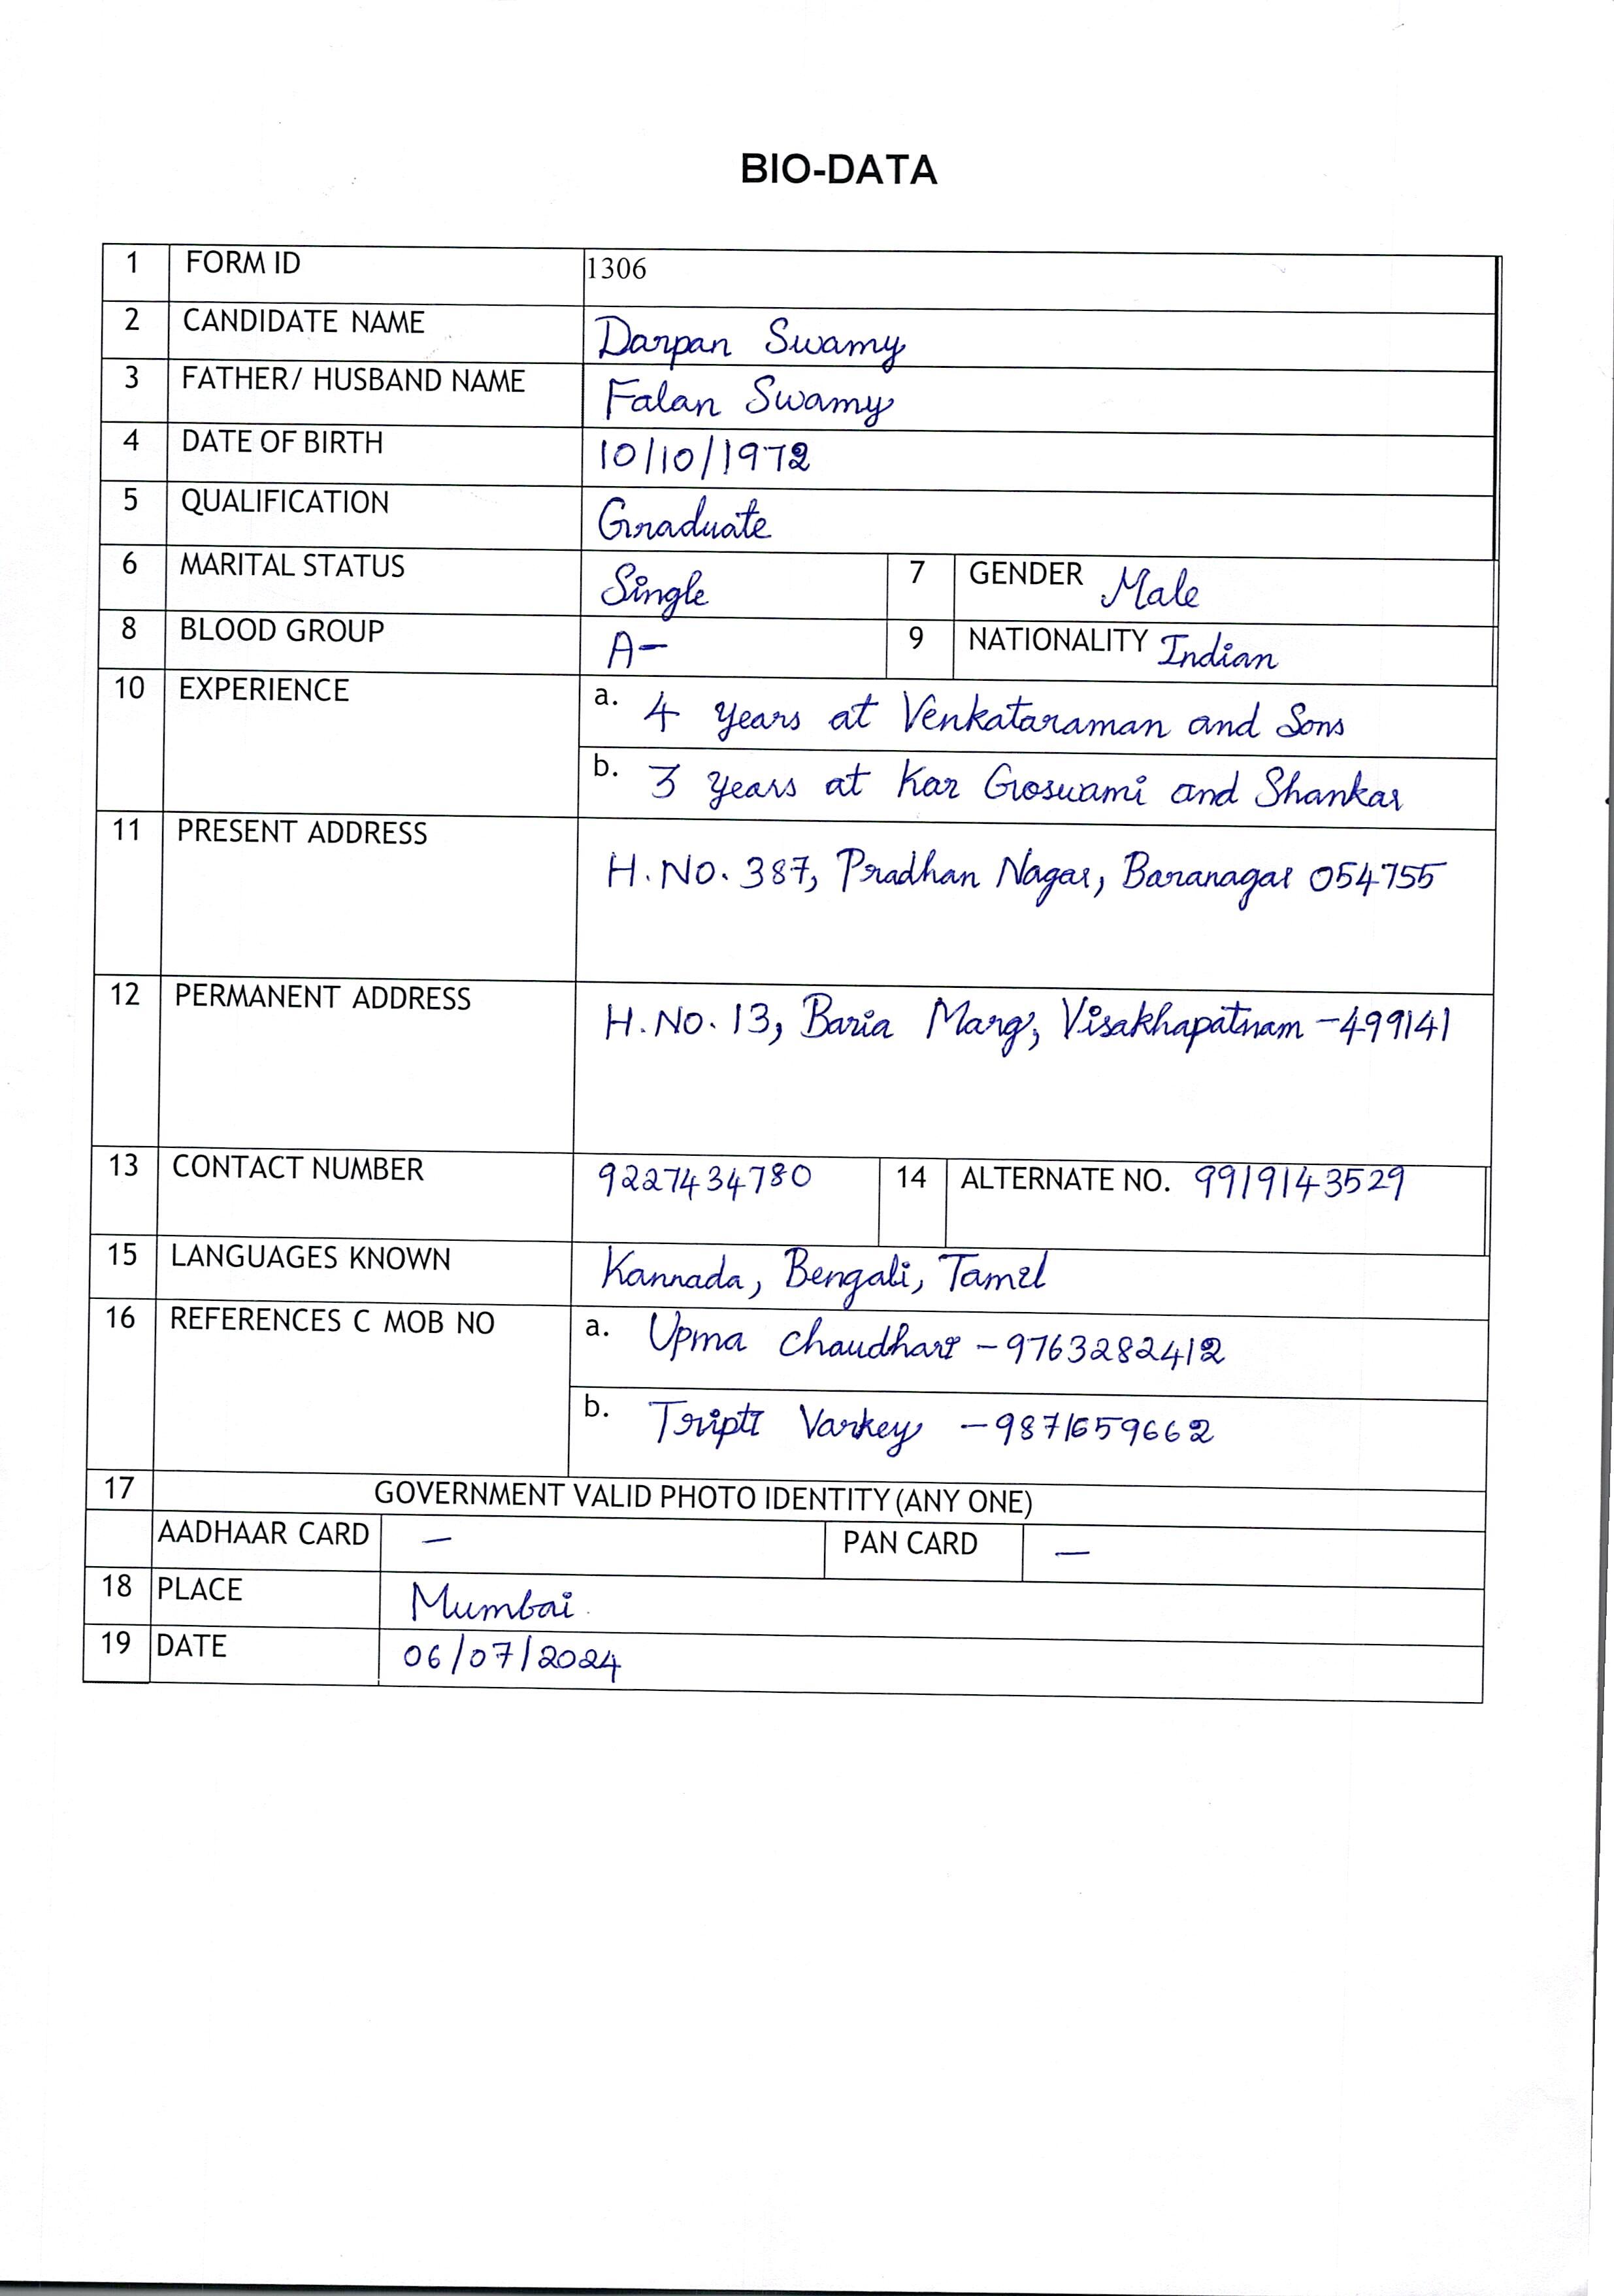 BIO-DATA
1 FORM ID 1306
2 CANDIDATE NAME Darpan Swamy
3 FATHER/ HUSBAND NAME Falan Swamy
4 DATE OF BIRTH 10/10/1972
5 QUALIFICATION Graduate
6 MARITAL STATUS Single 7 GENDER Male
8 BLOOD GROUP A- 9 NATIONALITY Indian
10 EXPERIENCE a. 4 years at Venkataraman and Sons
b. 3 years at Kar Goswami and Shankar
11 PRESENT ADDRESS
H.No. 387, Pradhan Nagar, Baranagar 054755
12 PERMANENT ADDRESS H.No. 13, Baria Marg, Visakhapatnam -499141
13 CONTACT NUMBER 9227434780 14 ALTERNATE NO. 9919143529
15 LANGUAGES KNOWN Kannada, Bengali, Tamil
16 REFERENCES C MOB NO a. Upma Chaudhari - 9763282412
b. Tripti Varkey - 9871659662
17 GOVERNMENT VALID PHOTO IDENTITY (ANY ONE)
AADHAAR CARD - PAN CARD -
18 PLACE Mumbai
19 DATE 06/07/2024